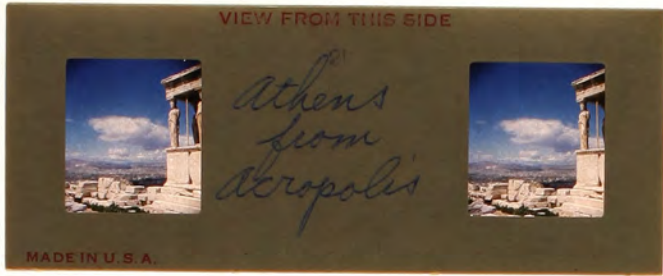 VIEW FROM THIS SIDE
Athens
from
Acropolis
MADE IN U.S.A.